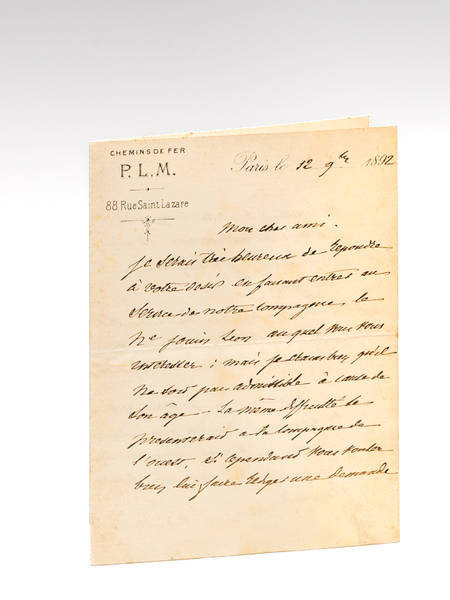 CHEMINS DE FER
P. L. M.
88, Rue Saint Lazare
Paris le 12 9bre 1892
Mon cher ami.
Je serais très heureux de répondre
à votre désir en faisant entrer au
service de notre Compagnie le
Né Jouin Léon auquel vous vous
intéressez ; mais je crains bien qu'il
ne soit pas admissible à cause de
son âge – La même difficulté se
présenterait à la Compagnie de
l'Ouest, si cependant vous voulez
bien lui faire rédiger une demande